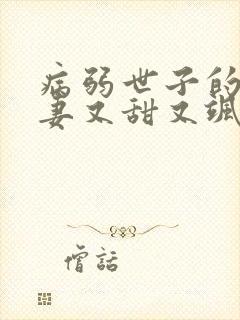 病弱世子的
妻又甜又飒
僧話